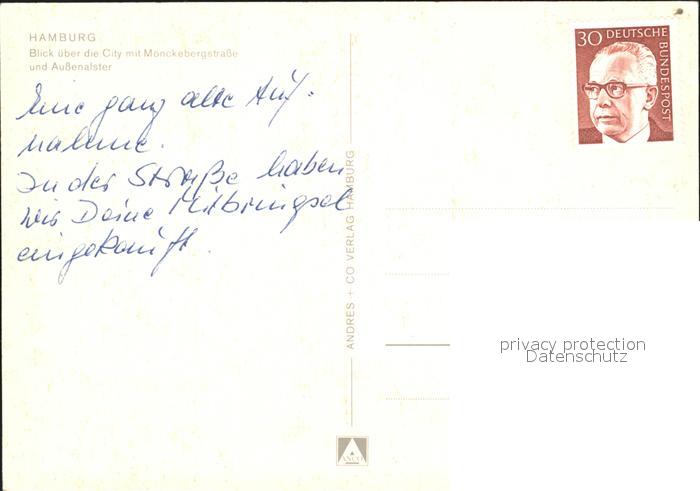 HAMBURG
Blick über die City mit Mönckebergstraße
und Außenalster
Eine ganz alte Auf-
nahme.
In der Straße haben
wir Deine Mitbringsel
eingekauft.
ANDRES + CO VERLAG HAMBURG
ANCO
30 DEUTSCHE
BUNDESPOST
privacy protection
Datenschutz